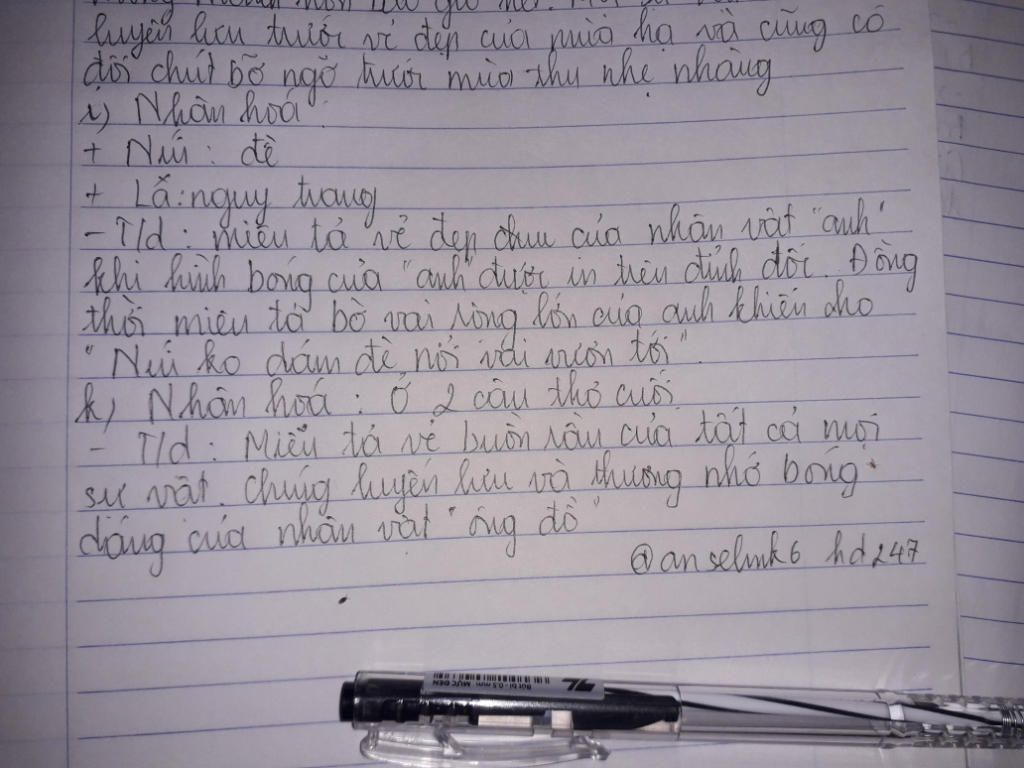 luyến lưu trước vẻ đẹp của mùa hạ và cũng có
đôi chút bỡ ngỡ trước mùa thu nhẹ nhàng
i) Nhân hoá:
+ Núi: đè
+ Lá: nguỵ trang
- T/d: miêu tả vẻ đẹp của nhân vật "anh"
khi hình bóng của "anh" được in trên đỉnh đồi. Đồng
thời miêu tả bờ vai rộng lớn của anh khiến cho
"Núi ko dám đè, nối vai vươn tới".
k) Nhân hoá: Ở 2 câu thơ cuối
- T/d: Miêu tả vẻ buồn rầu của tất cả mọi
sự vật. Chúng luyến lưu và thương nhớ bóng
dáng của nhân vật "ông đồ"
@anselmk6 hd247
TL
Bút bi - 0.5 mm MỰC ĐEN